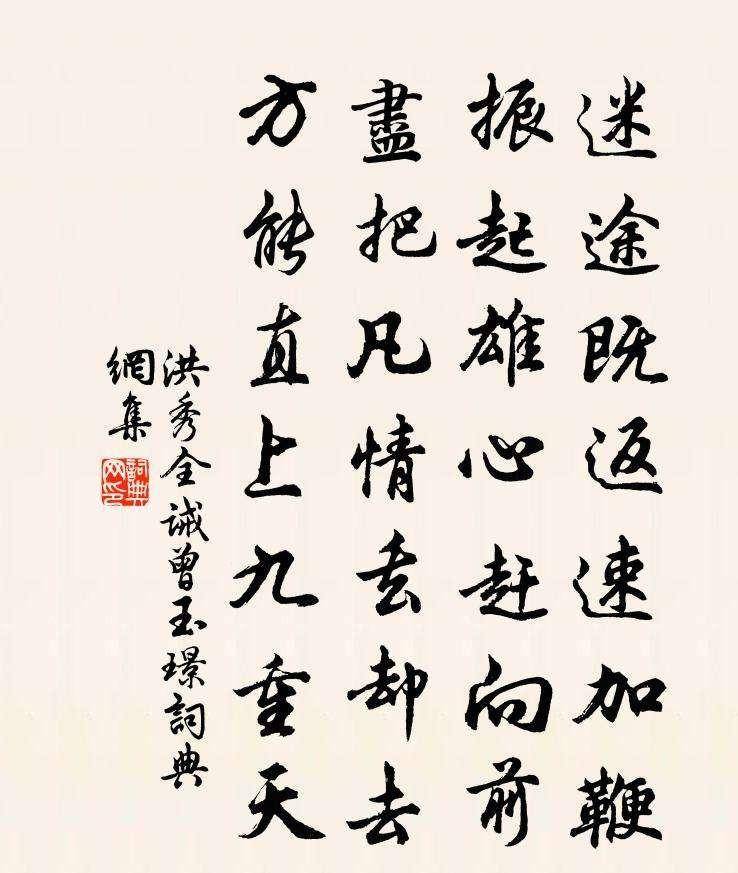 迷途既返速加鞭
振起雄心赶向前
盡把凡情丢却去
方能直上九重天
洪秀全誡曾玉璟詞典
網集
詞典
网印